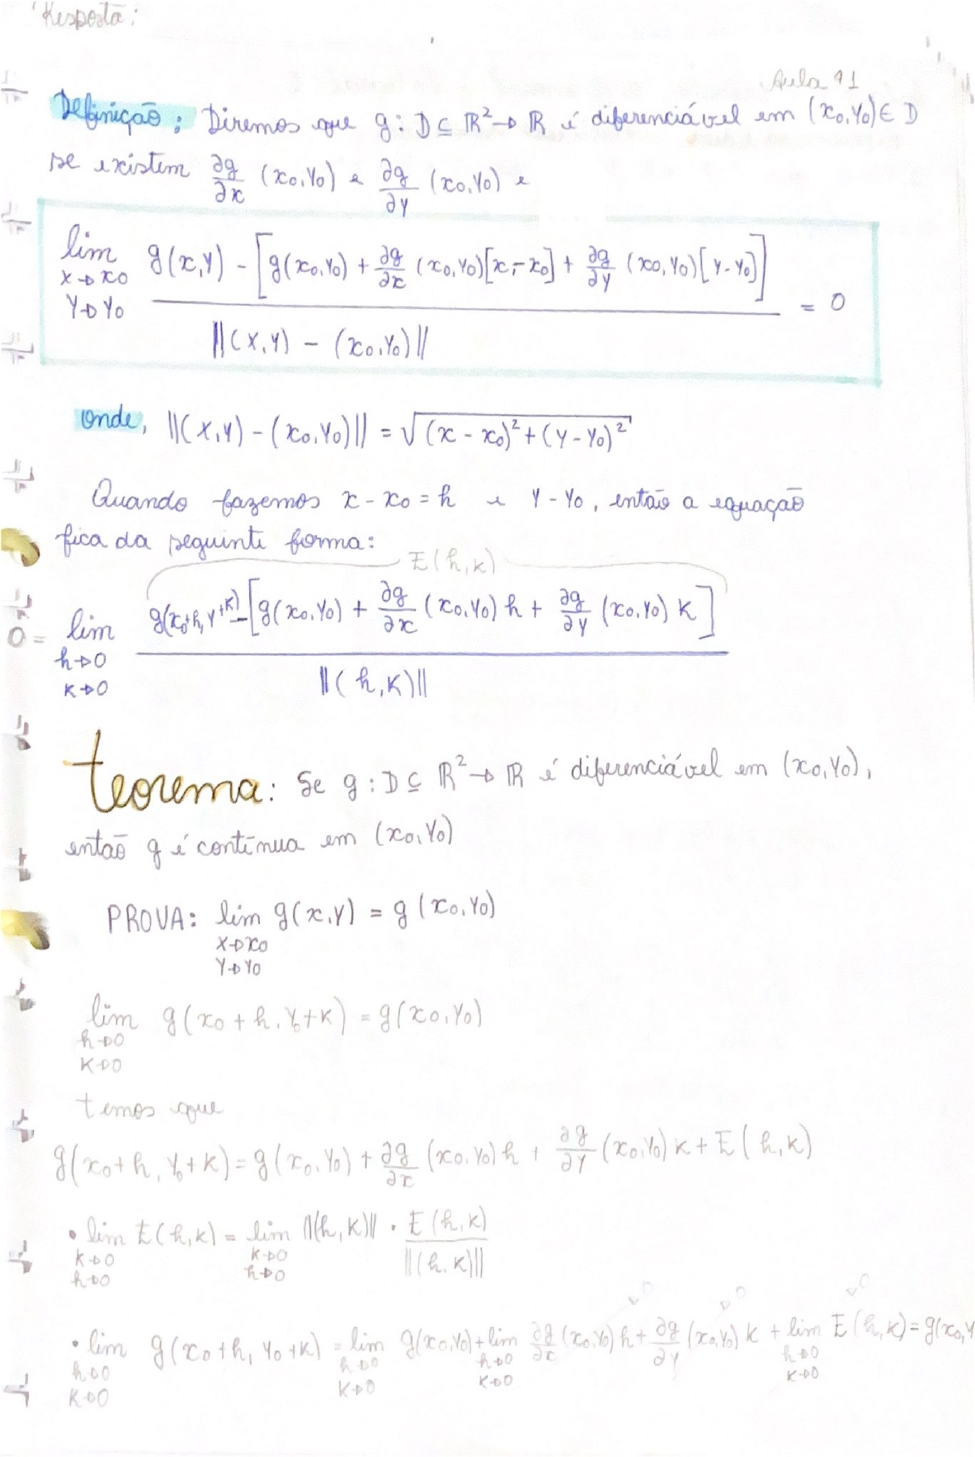 Resposta:
Aula 11
Definição: Diremos que g: D ⊆ ℝ² → ℝ é diferenciável em (x₀,y₀) ∈ D
se existem ∂g/∂x (x₀,y₀) e ∂g/∂y (x₀,y₀) e
lim x→x₀ y→y₀ (g(x,y) - [g(x₀,y₀) + ∂g/∂x (x₀,y₀)[x-x₀] + ∂g/∂y (x₀,y₀)[y-y₀]]) / ||(x,y) - (x₀,y₀)|| = 0
onde, ||(x,y) - (x₀,y₀)|| = √((x - x₀)² + (y - y₀)²)
Quando fazemos x - x₀ = h e y - y₀, então a equação
fica da seguinte forma:
E(h,k)
0 = lim h→0 k→0 (g(x₀+h, y+k) - [g(x₀,y₀) + ∂g/∂x (x₀,y₀) h + ∂g/∂y (x₀,y₀) k]) / ||(h,k)||
teorema: Se g: D ⊆ ℝ² → ℝ é diferenciável em (x₀,y₀),
então g é contínua em (x₀,y₀)
PROVA: lim x→x₀ y→y₀ g(x,y) = g(x₀,y₀)
lim h→0 k→0 g(x₀ + h, y₀+k) = g(x₀,y₀)
temos que
g(x₀+h, y₀+k) = g(x₀,y₀) + ∂g/∂x (x₀,y₀) h + ∂g/∂y (x₀,y₀) k + E(h,k)
• lim k→0 h→0 E(h,k) = lim k→0 h→0 ||(h,k)|| · E(h,k) / ||(h,k)||
• lim h→0 k→0 g(x₀+h, y₀+k) = lim h→0 k→0 g(x₀,y₀) + lim h→0 k→0 ∂g/∂x (x₀,y₀) h + ∂g/∂y (x₀,y₀) k + lim h→0 k→0 E(h,k) = g(x₀,y